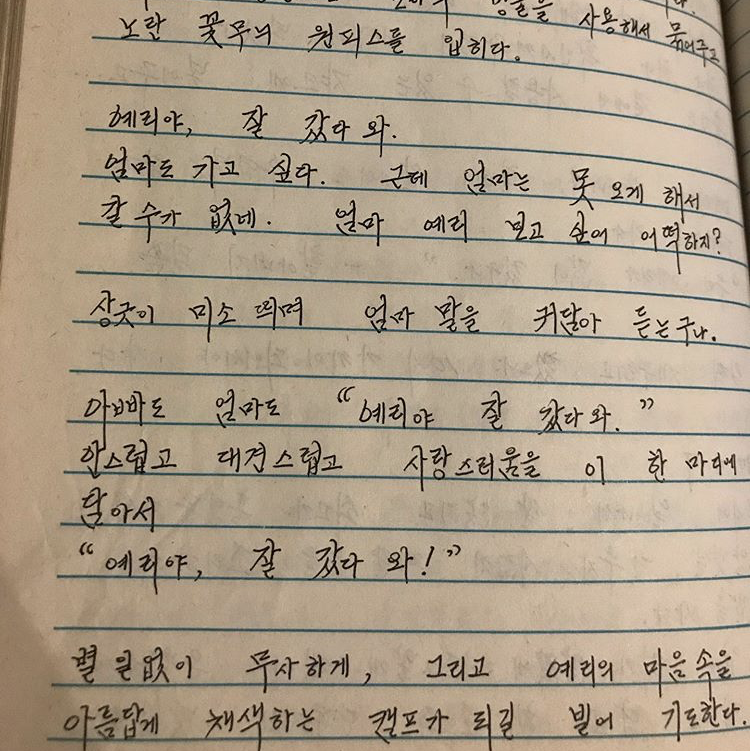 사용해서 묶어주고
노란 꽃무늬 원피스를 입히다.
혜리야, 잘 갔다 와.
엄마도 가고 싶다. 근데 엄마는 못 오게 해서
갈 수가 없네. 엄마 예리 보고 싶어 어떡하지?
상긋이 미소 띄며 엄마 말을 귀달아 듣는구나.
아빠도 엄마도 “예리야 잘 갔다와.”
안스럽고 대견스럽고 사랑스러움을 이 한 마디에
담아서
“예리야, 잘 갔다 와!”
별 일없이 무사하게, 그리고 예리의 마음 속을
아름답게 채색하는 캠프가 되길 빌어 기도한다.